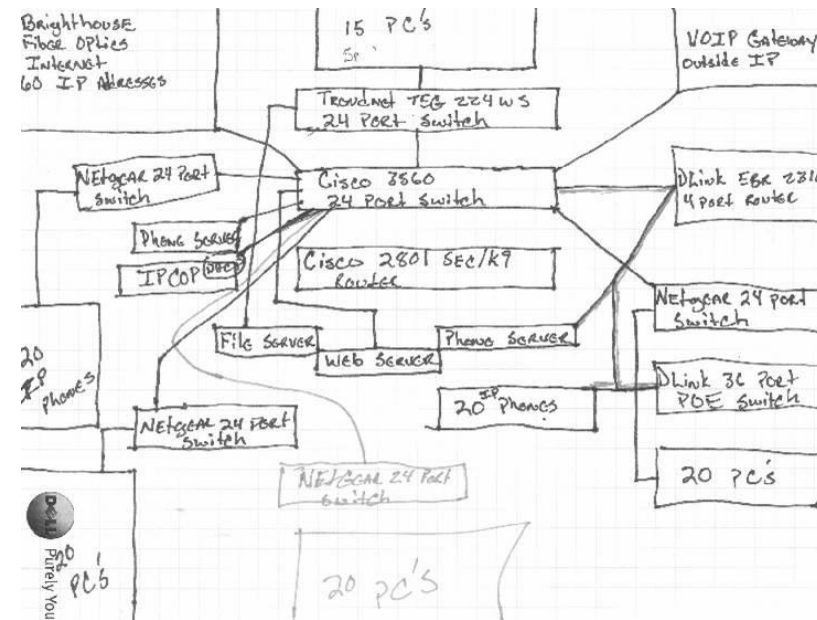 BrighthousE
FibER OPtics
INtERNEt
60 IP AddRESSES
15 PC'S
VOIP GatEWAY
outside IP
TRENdNEt TEG 224WS
24 PORt Switch
NEtgEAR 24 PORt
Switch
Cisco 3560
24 PORt Switch
DLink EBR 2310
4 PORt ROUtER
PhoNE SERVER
IPCOP DHCP
Cisco 2801 SEC/K9
ROUtER
NEtgEAR 24 PORt
Switch
FilE SERVER
WEB SERVER
PhoNE SERVER
20
IP
PhoNES
NEtgEAR 24 PORt
Switch
20 IP PhoNES
DLink 36 PORt
POE Switch
NEtGEAR 24 PORt
Switch
20 PC'S
20
PC'S
20 PC'S
DELL
Purely You